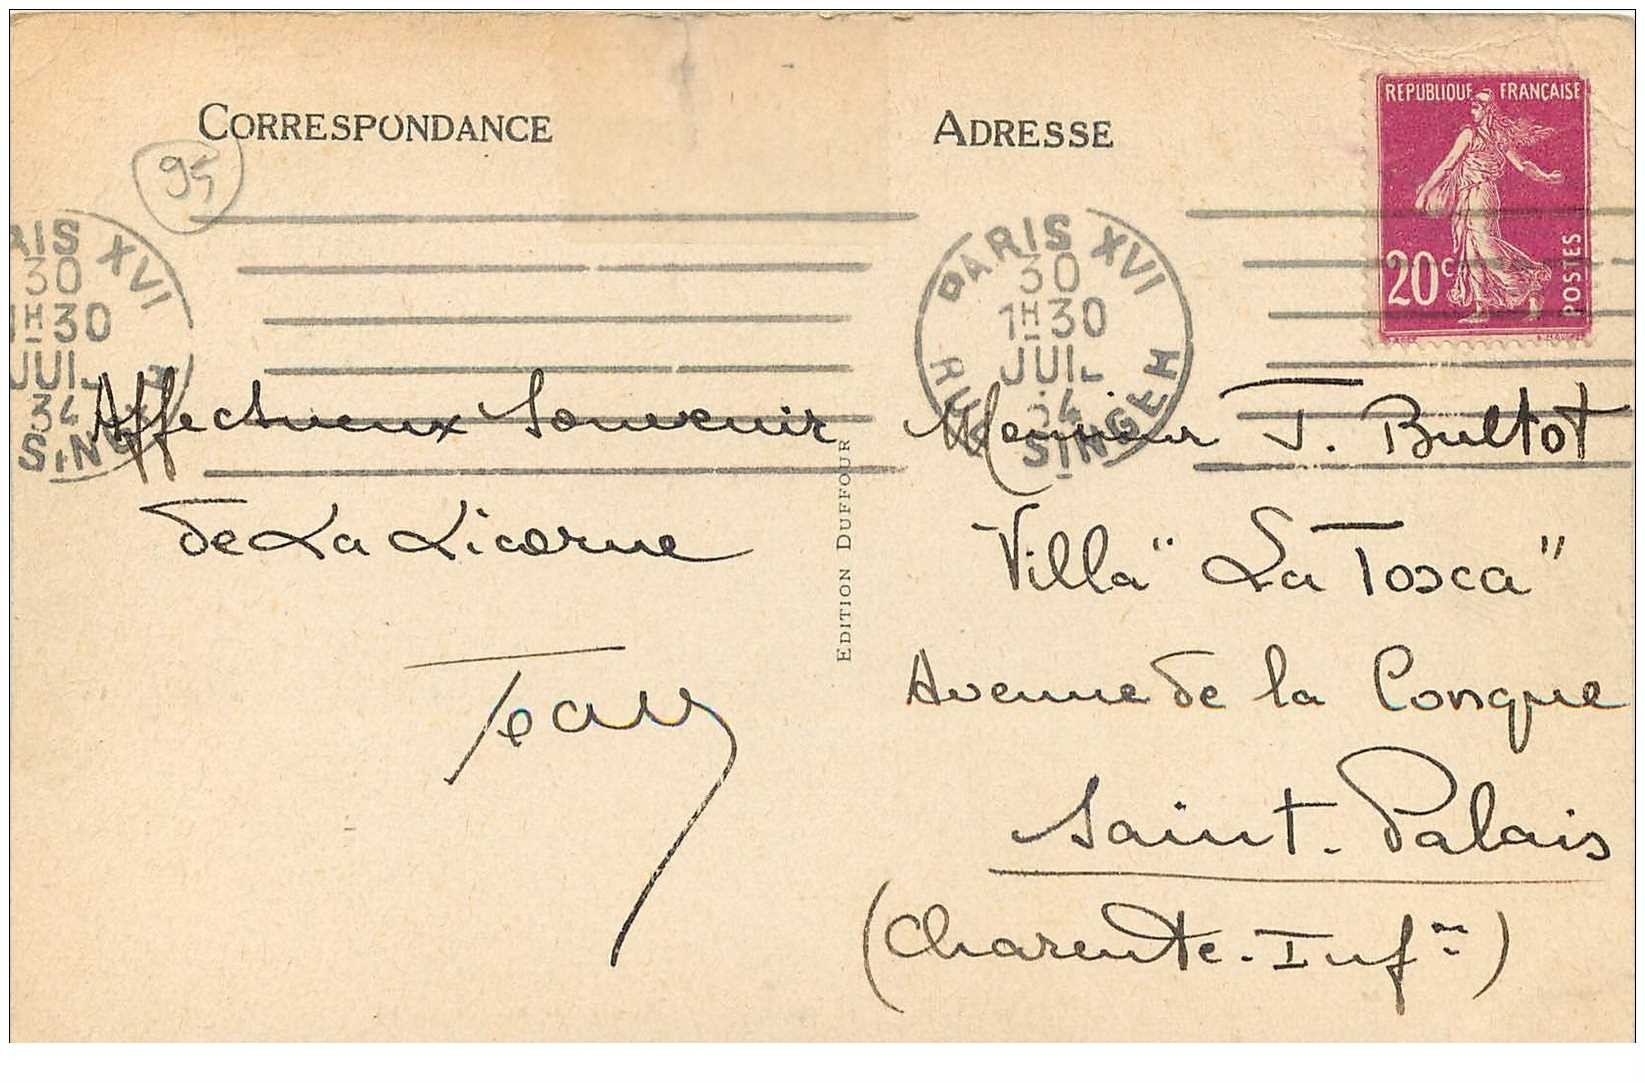 CORRESPONDANCE
95
Affectueux Souvenir
de La Licorne
EDITION DUFFOUR
ADRESSE
REPUBLIQUE FRANÇAISE
20c
POSTES
PARIS XVI
30
1H30
JUIL
34
RUE SINGER
Monsieur J. Bultot
Villa "La Tosca"
Avenue de la Conque
Saint-Palais
(Charente-Infre)
AIS XVI
30
1H30
JUIL
34
SING